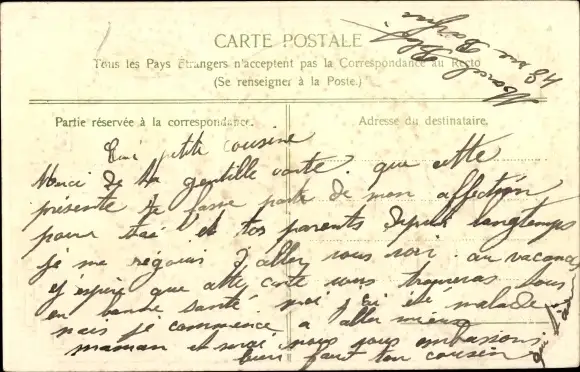 CARTE POSTALE
Tous les Pays étrangers n'acceptent pas la Correspondance au Recto
(Se renseigner à la Poste.)
Partie réservée à la correspondance.
Adresse du destinataire.
Marcel
48 rue
petite cousine
Merci de ta gentille carte. que cette
présente te fasse parte de mon affection
pour toi et tos parents depuis longtemps
je me réjouis d'aller vous voir au vacances
j'espère que cette carte vous trouveras tous
en bonne santé moi j'ai été malade
mais je commence a aller mieux
maman et moi nous vous embrassons
bien fort ton cousin